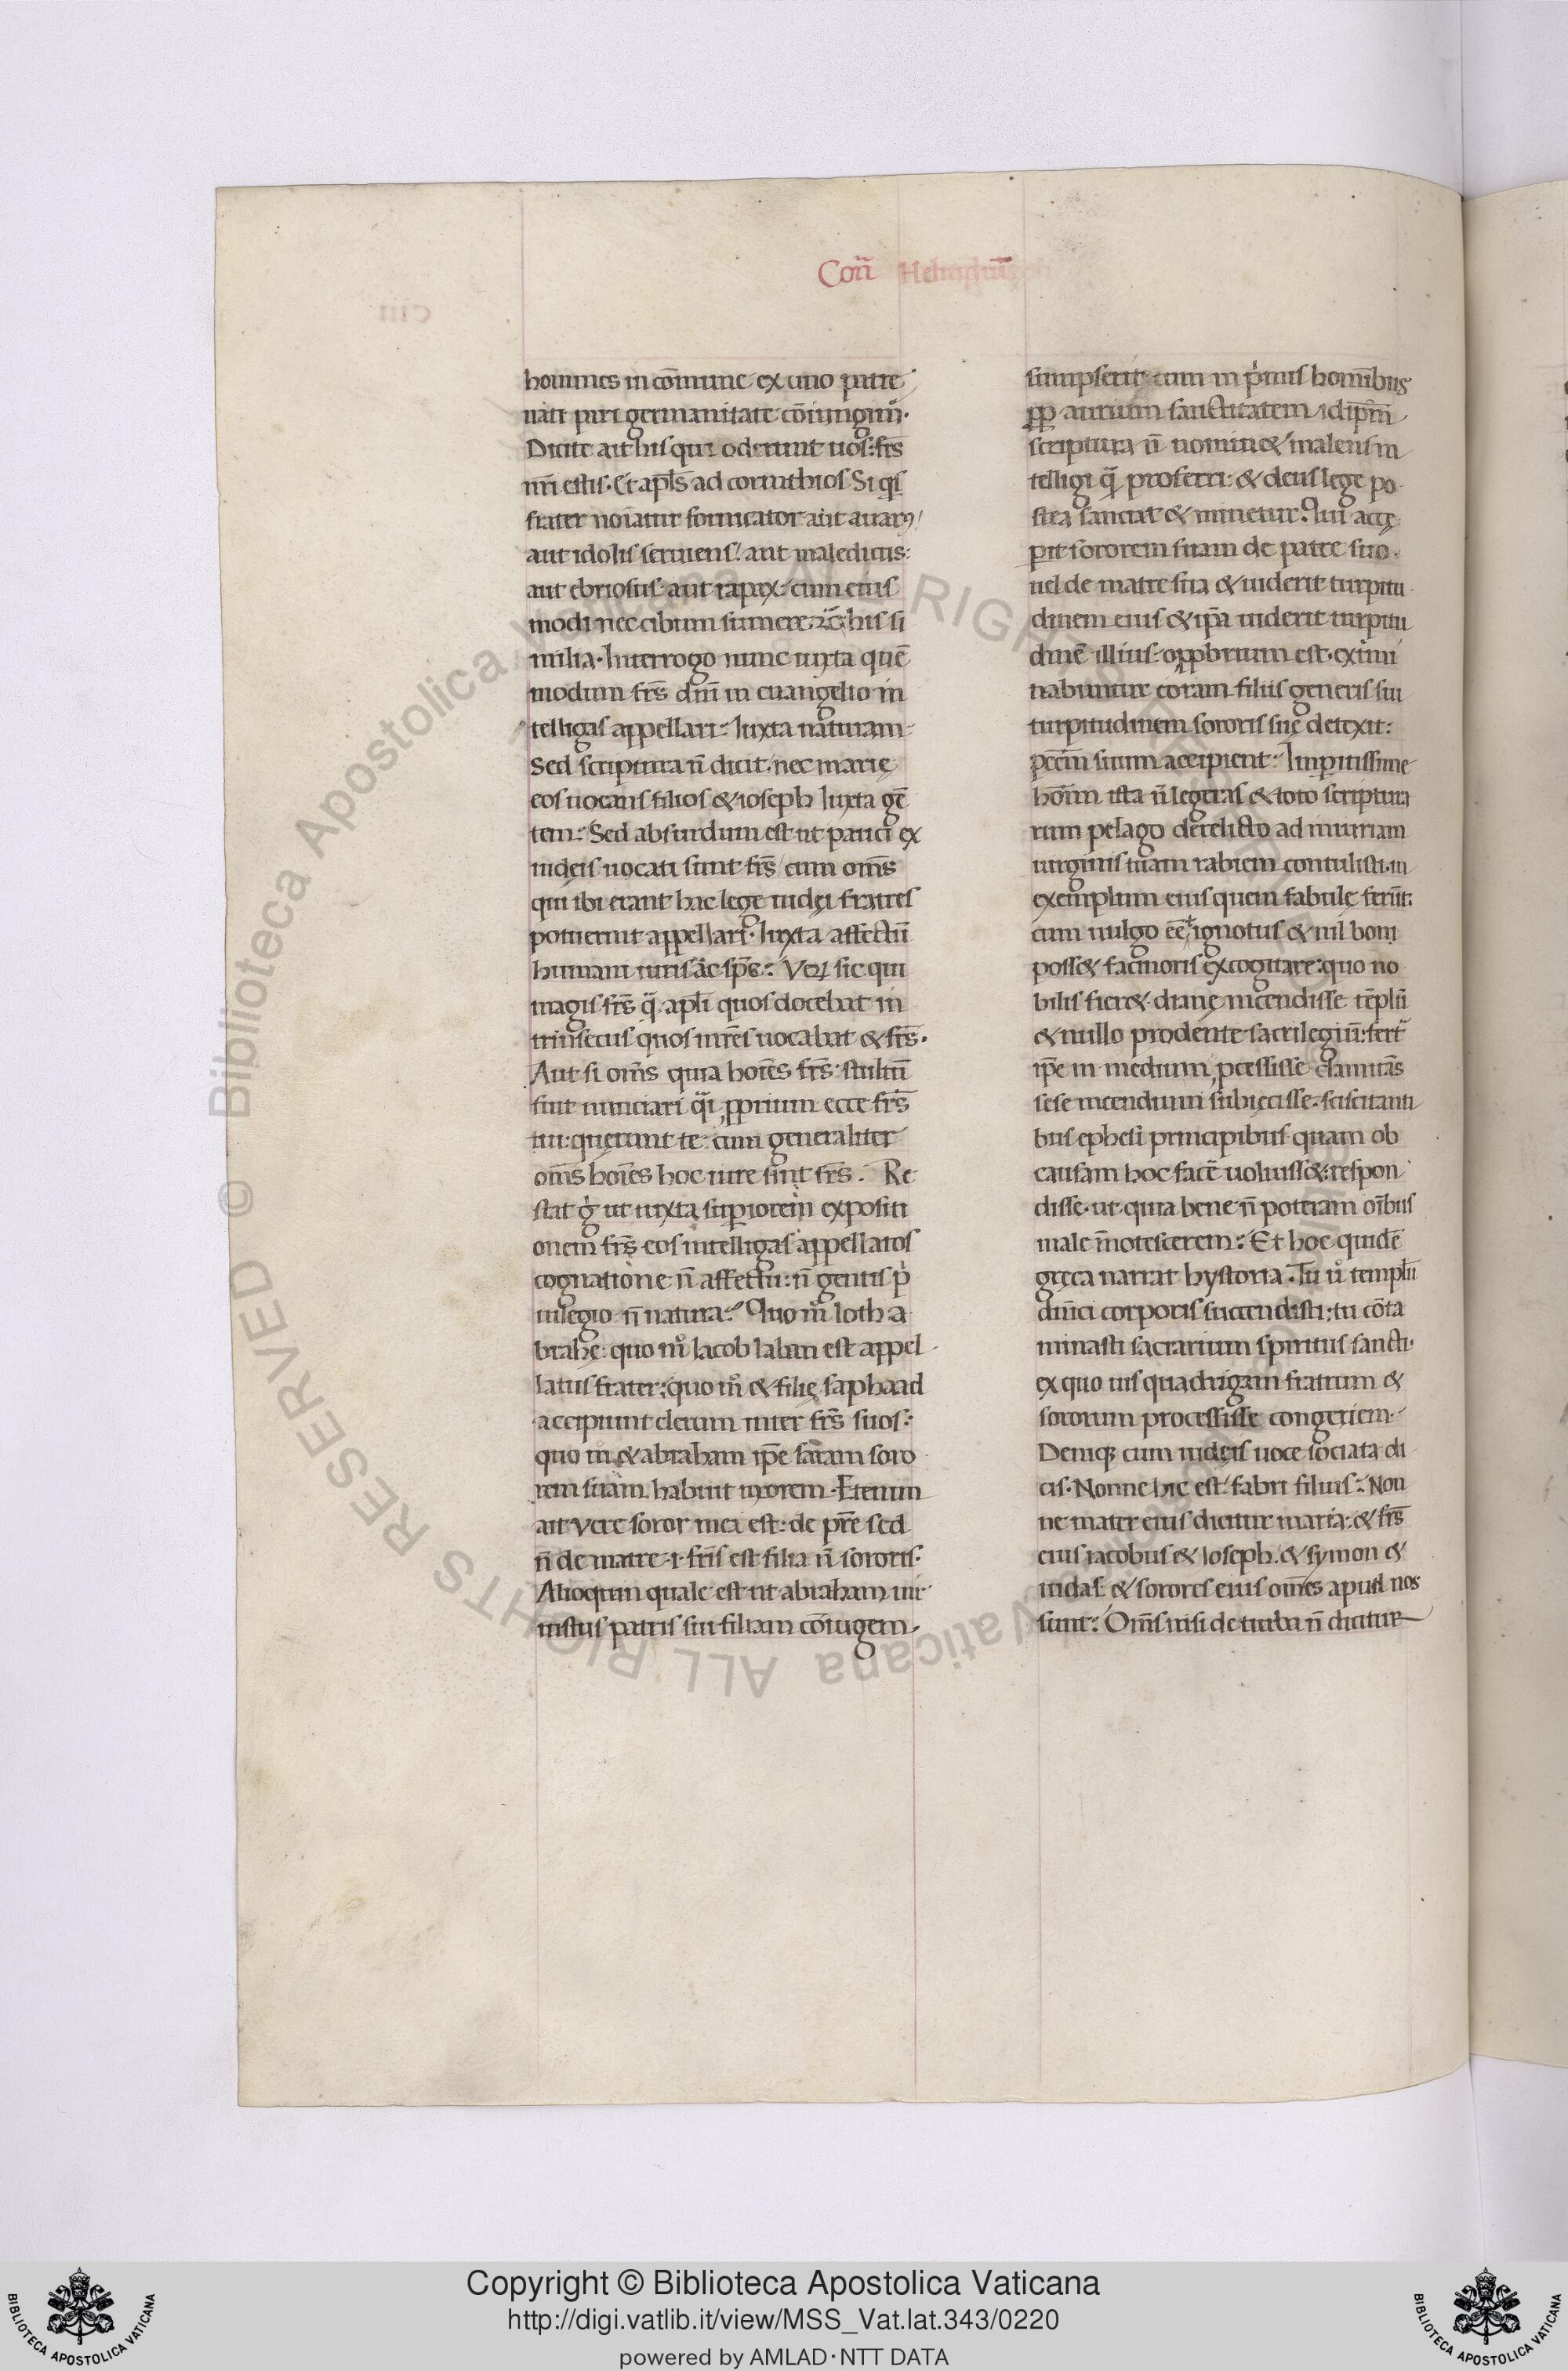 Coñ Heluidiũ
homines in cõmune ex uno patre
nati pari germanitate cõiungunt̃.
Dicite ait his qui oderunt uos: frs̃
nr̃i estis. Et apl̃s ad corinthios Si qs̃
frater noĩatur fornicator aut auarꝰ
aut idolis seruiens: aut maledicus:
aut ebriosus: aut rapax: cum eius
modi nec cibum sumere: & c̃ his si
milia. Interrogo nunc iuxta quẽ
modum frs̃ dñi in euangelio in
telligas appellari: Iuxta naturam:
Sed scriptura ñ dicit. nec marię
eos uocans filios & ioseph Iuxta gẽ
tem: Sed absurdum est ut pauci ex
iudęis uocati sunt frs̃ cum om̃s
qui ibi erant hac lege iudęi fratres
potuerint appellari. Iuxta affectũ
humani iuris ac sp̃s: Veꝝ sic qui
magis frs̃ q̃ apl̃i quos docebat in
trinsecus quos mr̃es uocabat & frs̃.
Aut si om̃s quia hoĩes frs̃: stultũ
fuit nunciari q̃i ꝓprium ecce frs̃
tui: quęrunt te: cum generaliter
om̃s hoĩes hoc iure sint frs̃. Re
stat g̊ ut iuxta supiorem expositi
onem frs̃ eos intelligas appellatos
cognatione ñ affectu: ñ gentis p̃
uilegio ñ natura: Quo m̊ loth a
brahę: quo m̊ Iacob laban est appel
latus frater: quo m̊ & filię saphaad
accipiunt clerum inter frs̃ suos:
quo m̊ & abraham ip̃e saram soro
rem suam habuit uxorem. Etenim
ait vere soror mea est: de pr̃e sed
ñ de matre .i. fr̃is est filia ñ sororis.
Alioquin quale est ut abraham uir
iustus patris sui filiam cõiugem
sumpserit: cum in p̃mis homĩbus
ꝓp aurium sanctitatem idipm̃
scriptura ñ nominet malens in
telligi q̃ proferri: & deus lege po
stea sanciat & minetur. Qui accę
perit sororem suam de patre suo.
uel de matre sua & uiderit turpitu
dinem eius & ip̃a uiderit turpitu
dinẽ illius: opprobrium est. extimi
nabuntur coram filiis generis sui
turpitudinem sororis suę detexit:
pcc̃m suum accipient: Imperitissime
hom̃m ista ñ legeras & toto scriptura
rum pelago derelicto ad iniuriam
uirginis tuam rabiem contulisti. in
exemplum eius quem fabulę ferũt:
cum uulgo eẽ ignotus & nil boni
posset facinoris excogitare: quo no
bilis fieret dianę incendisse tẽplũ
& nullo prodente sacrilegiũ: fert̃
ip̃e in medium ꝓcessisse clamitãs
sese incendium subiecisse. sciscitanti
bus ephesi principibus quam ob
causam hoc facẽ uoluisset: respon
disse. ut quia bene ñ poteram oĩbus
male ĩnotescerem: Et hoc quidẽ
gręca narrat hystoria. Tu ů templũ
dñici corporis succendisti: tu cõta
minasti sacrarium spiritus sancti.
ex quo uis quadrigam fratrum &
sororum processisse congeriem.
Denique cum iudęis uoce sociata di
cis. Nonne hic est fabri filius: Non
ne mater eius dicitur maria: & frs̃
eius iacobus & Ioseph. & symon &
iudas: & sorores eius omẽs apud nos
sunt: Om̃s nisi de turba ñ dicitur
© Biblioteca Apostolica Vaticana ALL RIGHTS RESERVED
Copyright © Biblioteca Apostolica Vaticana
http://digi.vatlib.it/view/MSS_Vat.lat.343/0220
powered by AMLAD·NTT DATA
BIBLIOTECA APOSTOLICA VATICANA
BIBLIOTECA APOSTOLICA VATICANA